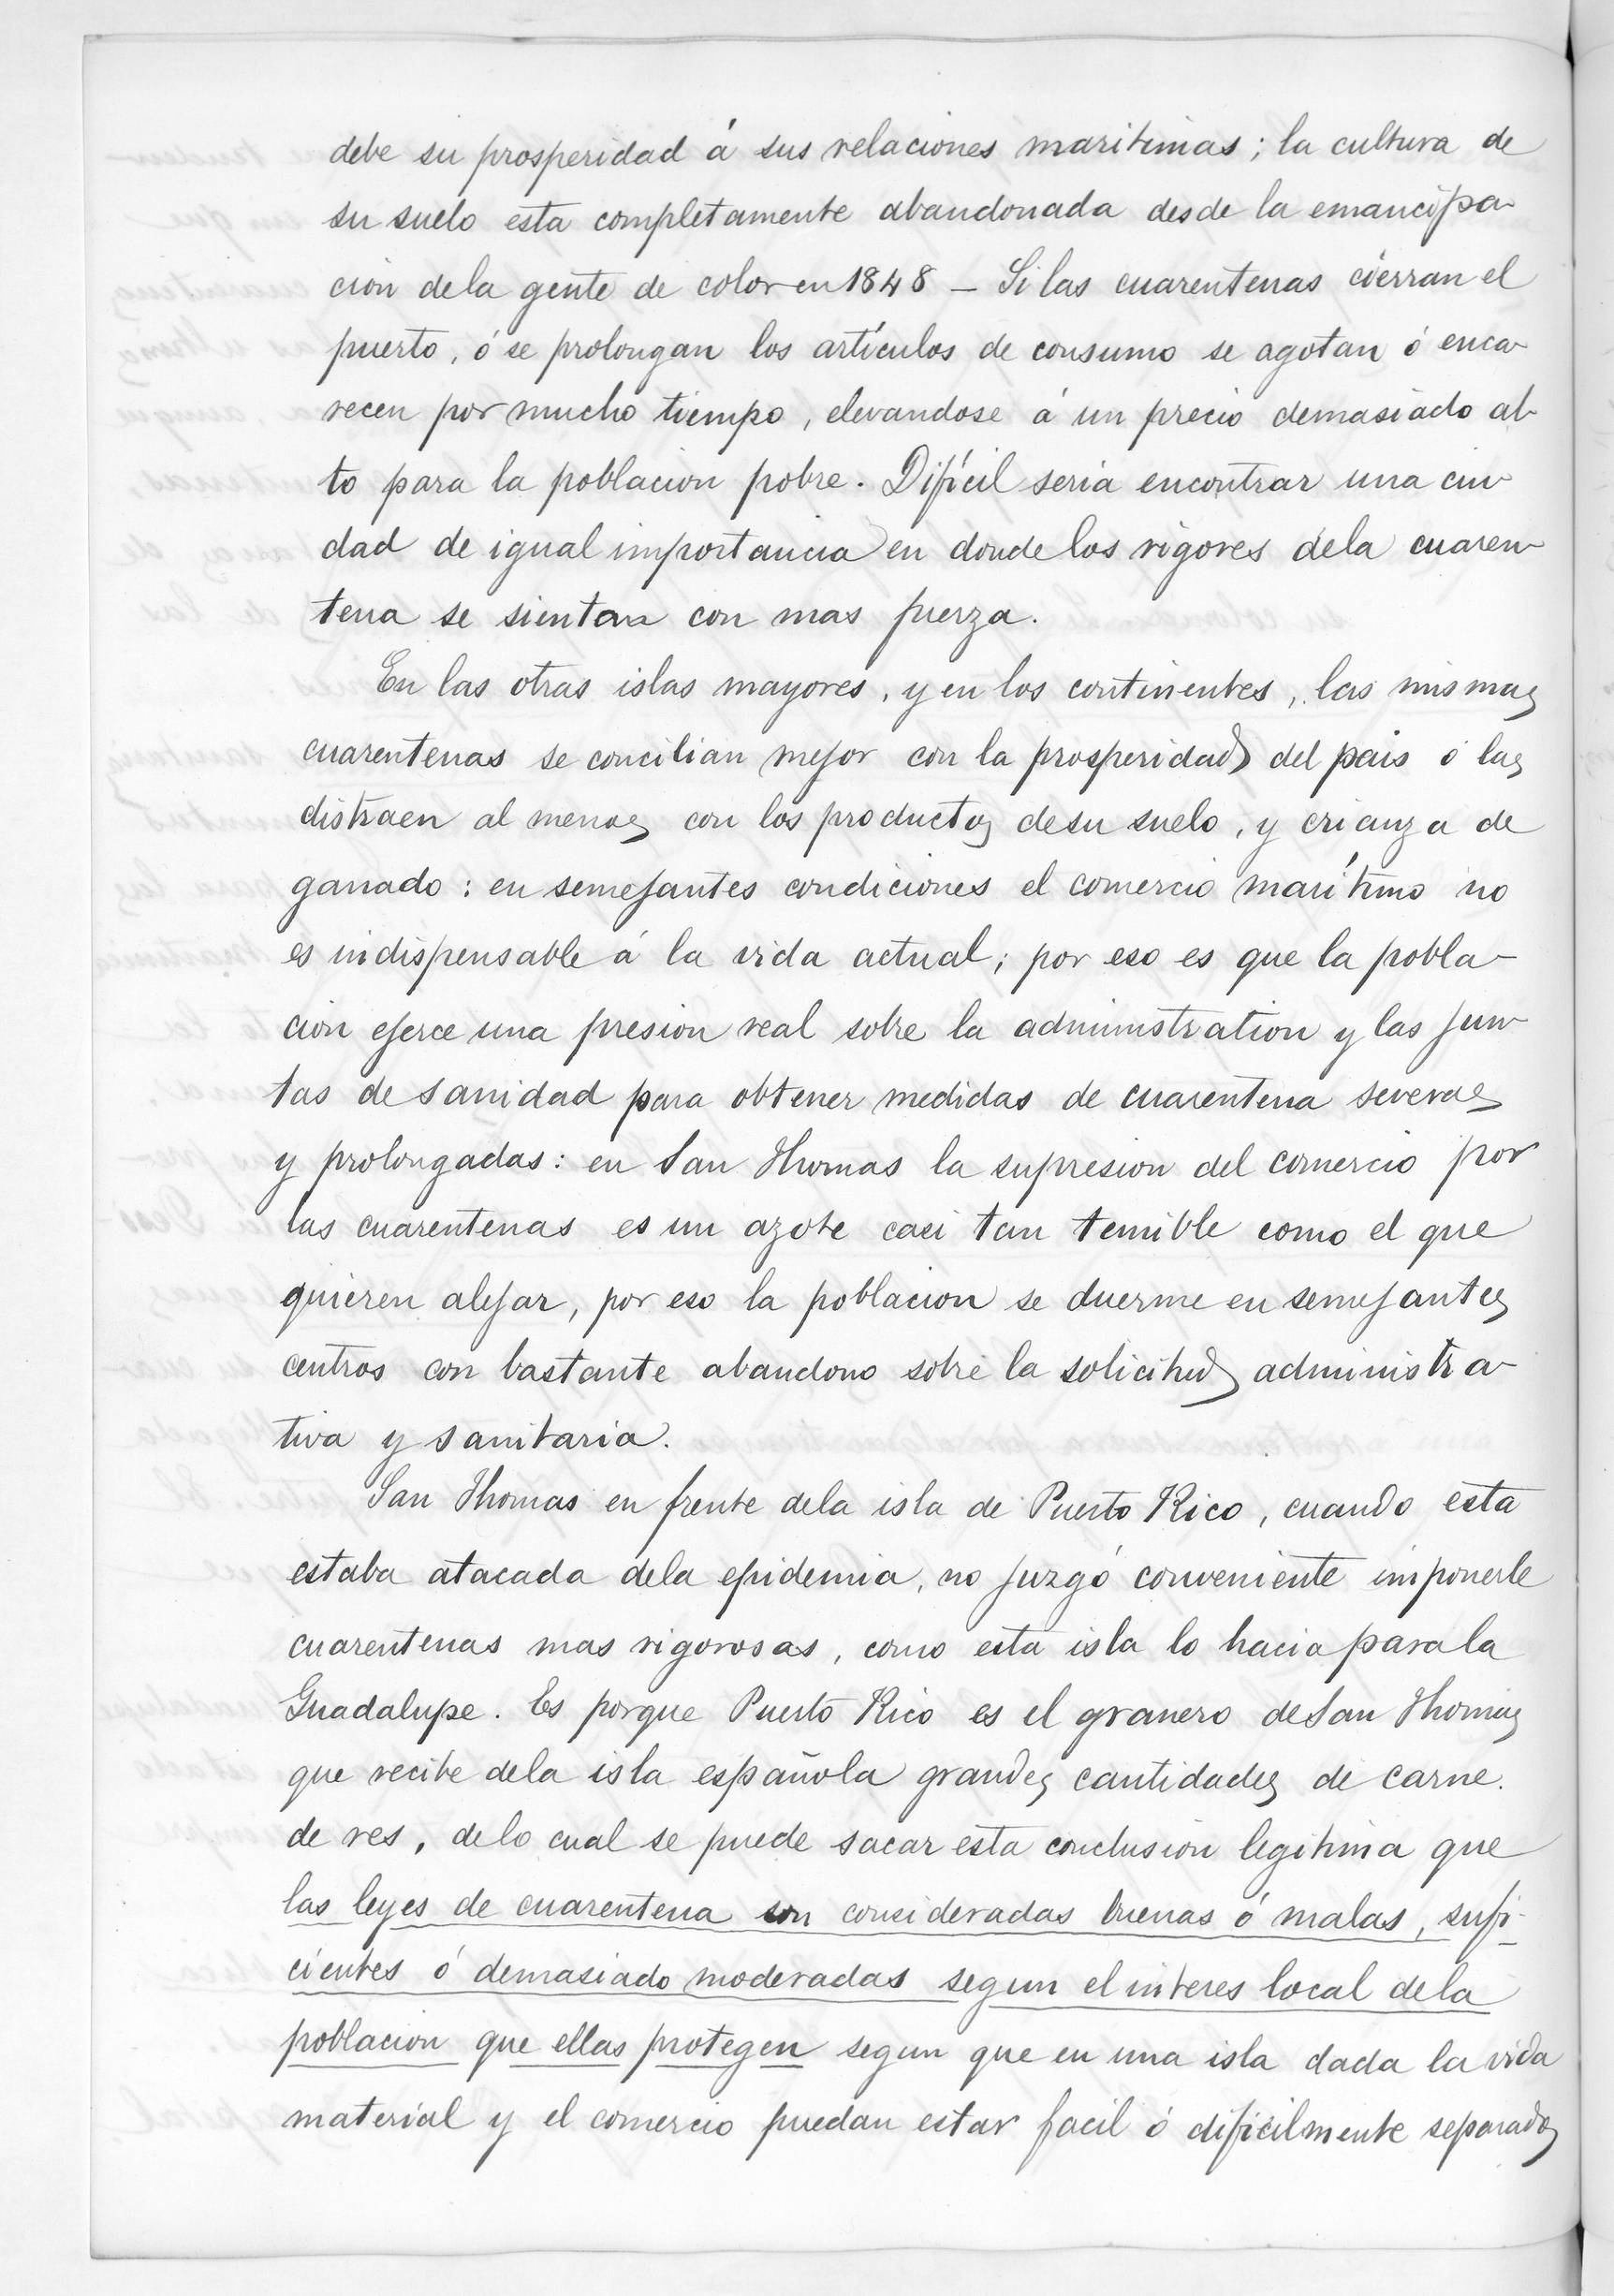 debe su prosperidad á sus relaciones maritimas; la cultura de
su suelo esta completamente abandonada desde la emancipa-
cion dela gente de color en 1848 – Si las cuarentenas cierran el
puerto, ó se prolongan los artículos de consumo se agotan ó enca-
recen por mucho tiempo, elevandose á un precio demasiado al-
to para la poblacion pobre. Difícil seria encontrar una ciu-
dad de igual importancia en donde los rigores dela cuaren-
tena se sientan con mas fuerza.
En las otras islas mayores, y en los continentes, las mismas
cuarentenas se concilian mejor con la prosperidad del pais ó las
distraen al menos con los productos de su suelo, y crianza de
ganado: en semejantes condiciones el comercio marítimo no
es indispensable á la vida actual; por eso es que la pobla-
cion ejerce una presion real sobre la administration y las jun-
tas de sanidad para obtener medidas de cuarentena severas
y prolongadas: en San Thomas la supresion del comercio por
las cuarentenas es un azote casi tan temible como el que
quieren alejar, por eso la poblacion se duerme en semejantes
centros con bastante abandono sobre la solicitud administra-
tiva y sanitaria.
San Thomas en frente dela isla de Puerto Rico, cuando esta
estaba atacada dela epidemia, no juzgó conveniente imponerle
cuarentenas mas rigorosas, como esta isla lo hacia para la
Guadalupe. Es porque Puerto Rico es el granero de San Thomas
que recibe dela isla española grandes cantidades de carne.
de res, de lo cual se puede sacar esta conclusion legitima que
las leyes de cuarentena son consideradas buenas ó malas, sufi-
cientes ó demasiado moderadas segun el interes local dela
poblacion que ellas protegen segun que en una isla dada la vida
material y el comercio puedan estar facil ó dificilmente separados